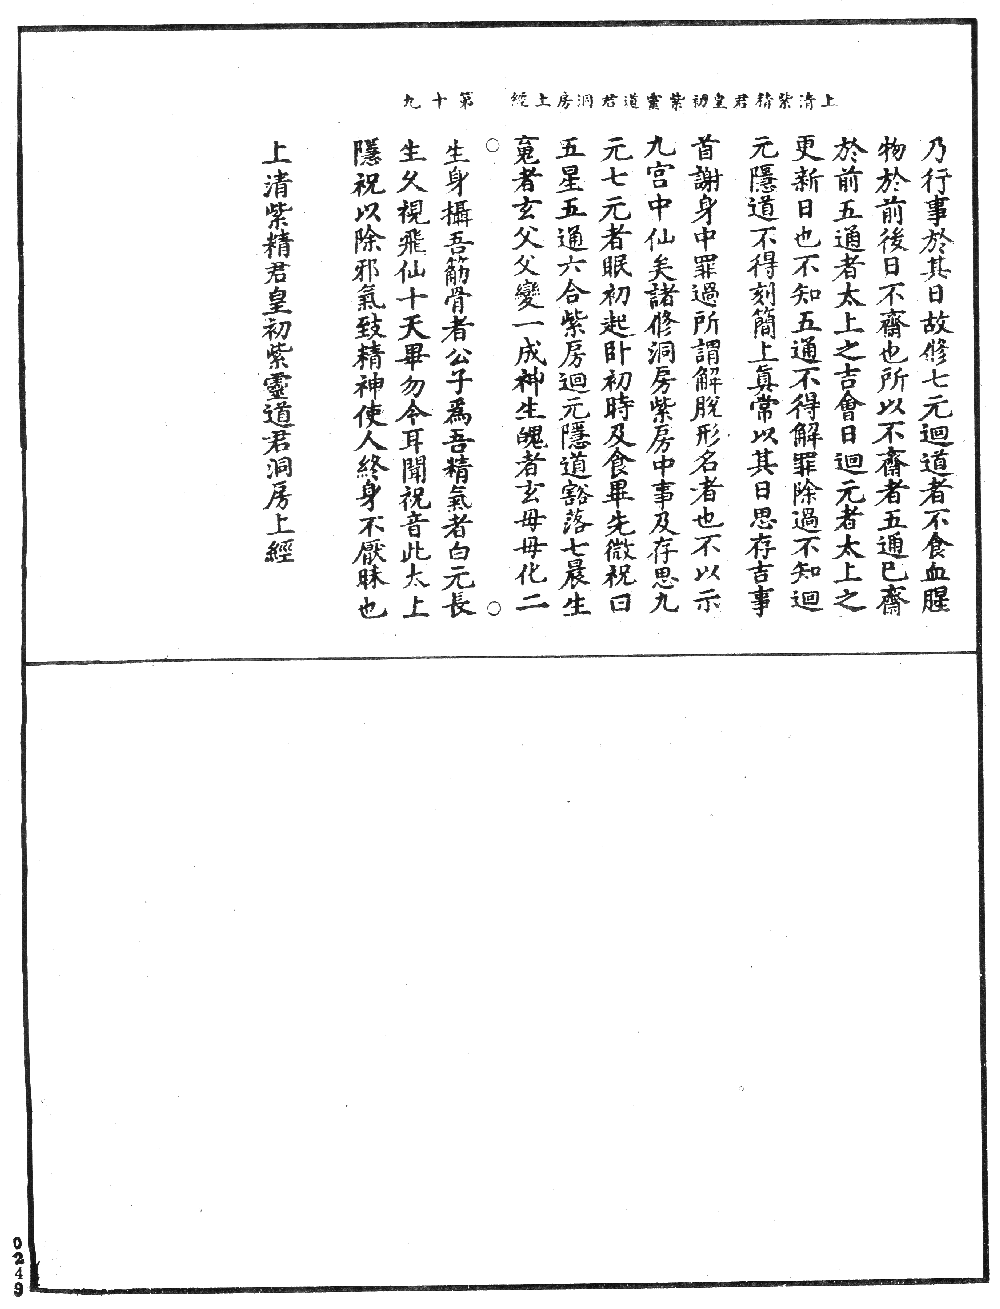 上清紫精君皇初紫靈道君洞房上經　第十九
乃行事於其日故修七元迴道者不食血腥
物於前後日不齋也所以不齋者五通已齋
於前五通者太上之吉會日迴元者太上之
更新日也不知五通不得解罪除過不知迴
元隱道不得刻簡上真常以其日思存吉事
首謝身中罪過所謂解脫形名者也不以示
九宮中仙矣諸修洞房紫房中事及存思九
元七元者眠初起卧初時及食畢先微祝曰
五星五通六合紫房迴元隱道豁落七晨生
䰟者玄父父變一成神生魄者玄母母化二
○生身攝吾筋骨者公子為吾精氣者白元長○
生久視飛仙十天畢勿令耳聞祝音此太上
隱祝以除邪氣致精神使人終身不厭昧也
上清紫精君皇初紫靈道君洞房上經
0249